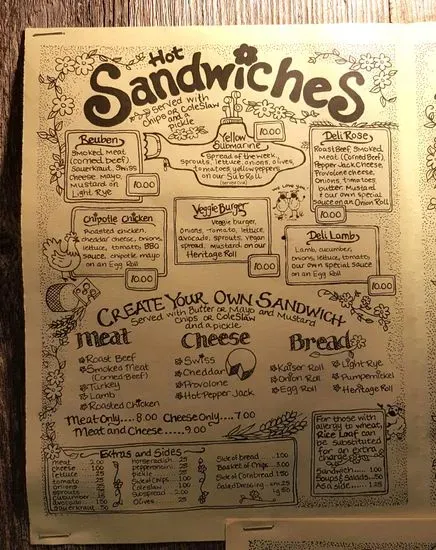 Hot
Sandwiches
Served with
Chips or Coleslaw
and a
pickle
Reuben
Smoked Meat
(corned beef),
Sauerkraut, Swiss
Cheese, Mayo,
Mustard on
Light Rye
10.00
Yellow
Submarine
10.00
Spread of the week,
sprouts, lettuce, onions, olives,
tomatoes, yellow peppers
on our Sub Roll
(served cold)
Deli Rose
Roast Beef, Smoked
Meat (Corned Beef),
Pepper Jack Cheese,
Provolone cheese,
Onions, tomatoes
butter, Mustard
& our own special
sauce on an Onion Roll
10.00
Chipotle Chicken
Roasted chicken,
cheddar cheese, onions,
lettuce, tomato, BBQ
sauce, chipotle mayo
on an Egg Roll
10.00
Veggie Burger
Veggie burger,
onions, tomato, lettuce,
avocado, sprouts, vegan
spread, mustard, on our
Heritage Roll
10.00
We Love You
Deli Lamb
Lamb, cucumber,
onions, lettuce, tomato,
our own special sauce
on an Egg Roll
10.00
Create Your Own Sandwich
Served with Butter or Mayo and Mustard
Chips or Coleslaw
and a pickle
Meat
Roast Beef
Smoked Meat
(Corned Beef)
Turkey
Lamb
Roasted Chicken
Cheese
Swiss
Cheddar
Provolone
Hot Pepper Jack
Bread
Kaiser Roll
Onion Roll
Egg Roll
Light Rye
Pumpernickel
Heritage Roll
Meat Only....8.00 Cheese Only....7.00
Meat and Cheese.....9.00
Extras and Sides
meat 2.00
cheese 1.00
lettuce .50
tomato
onions
sprouts
cucumber
avocado
sauerkraut .50
horseradish
pepperoncini
pickle
Side of chips
Coleslaw
Sub spread 2.00
Olives
Side of bread ...1.00
Basket of Chips 3.00
Side of Cornbread 1.50
Salad Dressing sm .25
lg .50
For those with
allergy to wheat,
Rice Loaf can
be substituted
for an extra
charge
Sandwich...... 1.00
Soups & Salads... .50
As a side.... 1.25